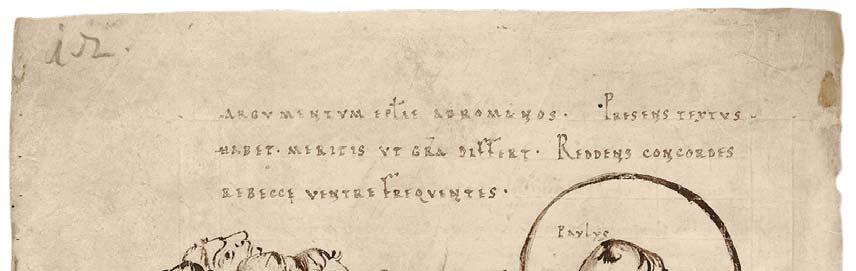 ir.
ARGUMENTUM EPŁE ADROMANOS · PRESENS TEXTUS
HABET · MERITIS UT GRĀ DIFFERT · REDDENS CONCORDES
REBECCĘ VENTRE FREQUENTES ·
PAULUS